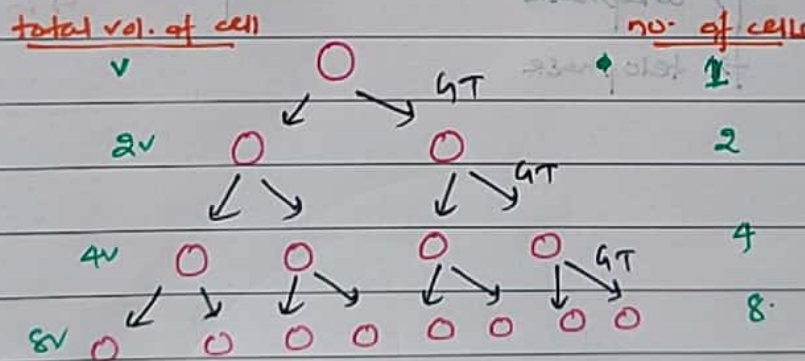 total vol. of cell no. of cells
v 1
GT
2v 2
GT
4v 4
GT
8v 8.